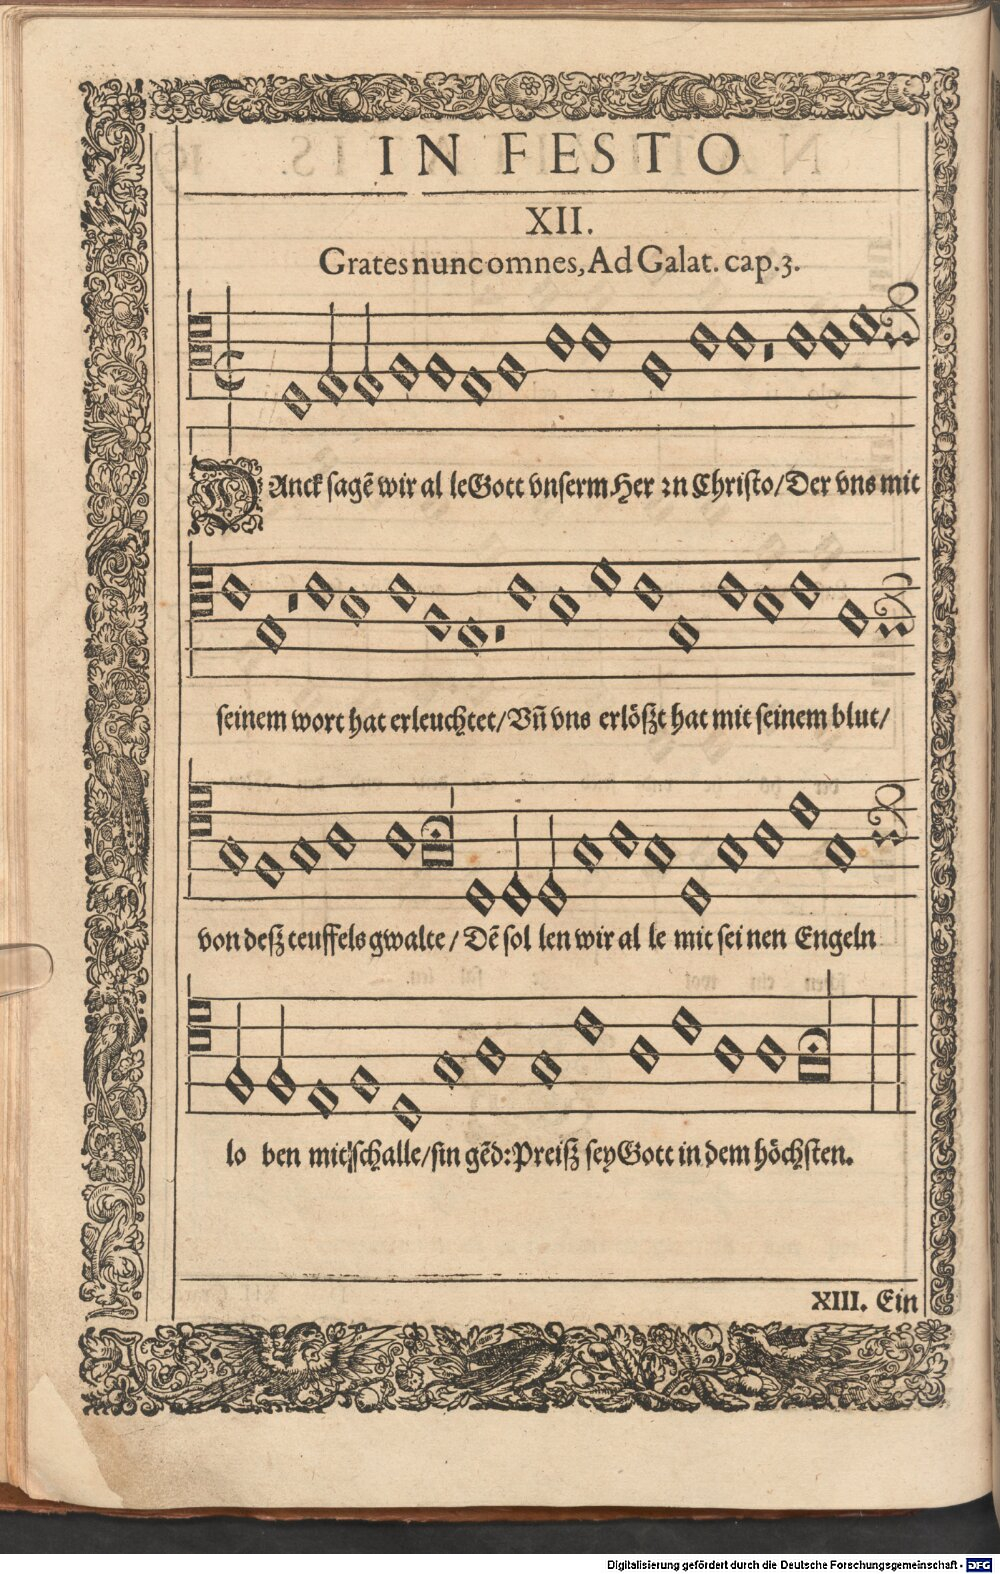 IN FESTO
XII.
Grates nunc omnes, Ad Galat. cap. 3.
DAnck sagē wir al le Gott vnserm Her ꝛn Christo/ Der vns mit
seinem wort hat erleuchtet/ Vn̄ vns erlößt hat mit seinem blut/
von deß teuffels gwalte/ Dē sol len wir al le mit sei nen Engeln
lo ben mit schalle/ sin gēd: Preiß sey Gott in dem höchsten.
XIII. Ein
Digitalisierung gefördert durch die Deutsche Forschungsgemeinschaft - DFG